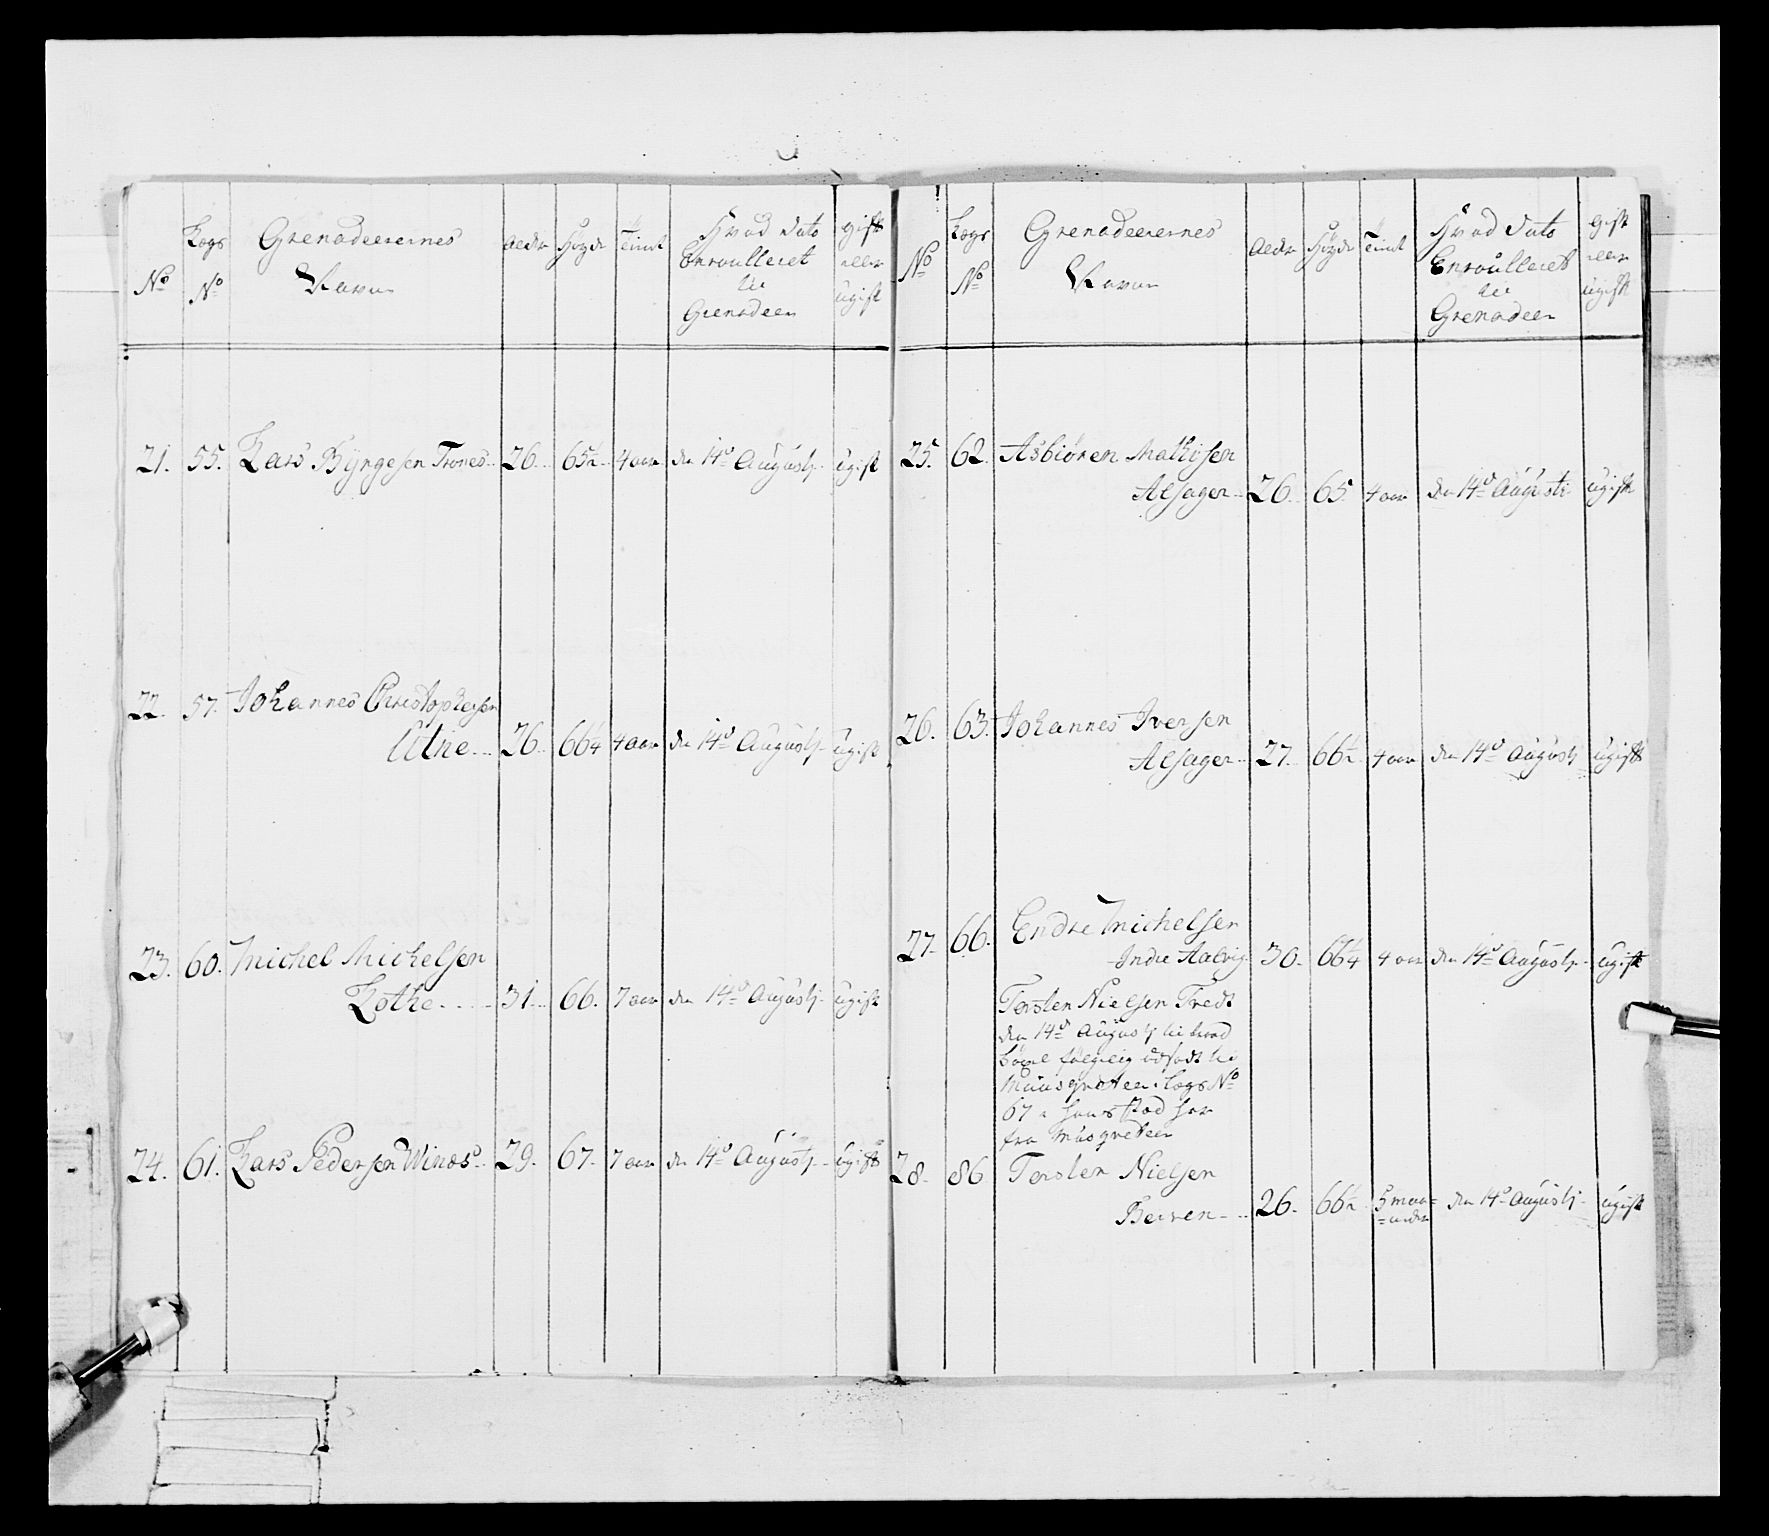 No
Lægs
No
Grenadeerernes
Navn
Alder
Høyde
Tient
Hvad Dato
Enroulleret
til
Grenadeer
gift
eller
ugift
21. 55. Lars Byrgesen Trones 26. 65½ 4 aar den 14de Augustj ugift
22. 57. Johannes Christophersen
Utne 26. 66¼ 4 aar den 14de Augustj ugift
23. 60. Michel Michelsen
Kothe 31. 66. 7 aar den 14de Augustj ugift
24. 61. Lars Pedersen Winæs 29. 67. 7 aar den 14de Augustj ugift
No
Lægs
No
Grenadeerernes
Navn
Alder
Høyde
Tient
Hvad Dato
Enroulleret
til
Grenadeer
gift
eller
ugift
25. 62. Asbiören Mathisen
Alsager 26. 65 4 aar den 14de Augusti ugift
26. 63. Johannes Iversen
Alsager 27. 66½ 4 aar den 14de Augustj ugift
27. 66. Endre Michelsen
Indre Aalvig 30. 66¼ 4 aar den 14de Augustj ugift
Torsten Nielsen Tredt
den 14de Augustj
udsadt til
Musqveteer Lægs No
67 hans stæd har
fra Musqveteer
28. 86 Torsten Nielsen
Berven 26. 66½ 5 maa=
=neder den 14de Augustj ugift